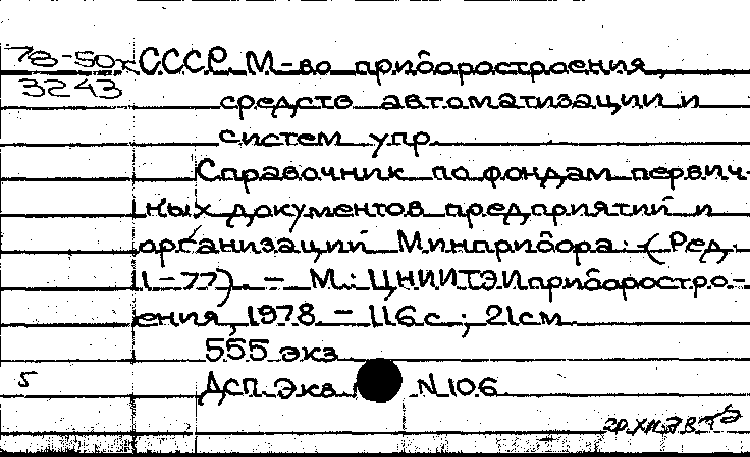 78-50х СССР. М-во приборостроения,
3243
средств автоматизации и
систем упр.
Справочник по фондам первич-
ных документов предприятий и
организаций Минприбора: (Ред.
11-77). - М.: ЦНИИТЭИприборостро-
ения, 1978. - 116 с.; 21 см.
555 экз.
5 ДСП. Экз. N 106